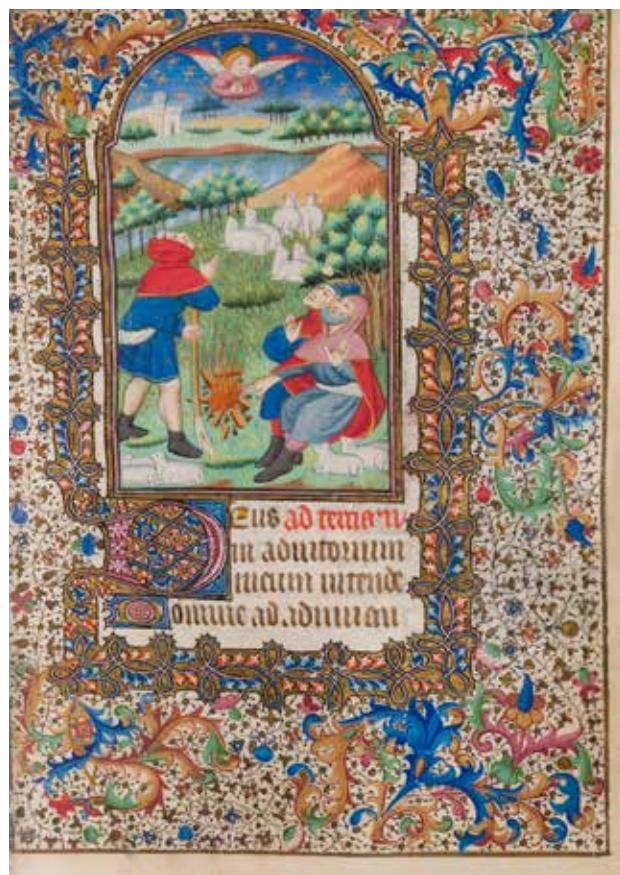 Deus ad terciam
in adiutorium
meum intende
Domine ad adiuuan